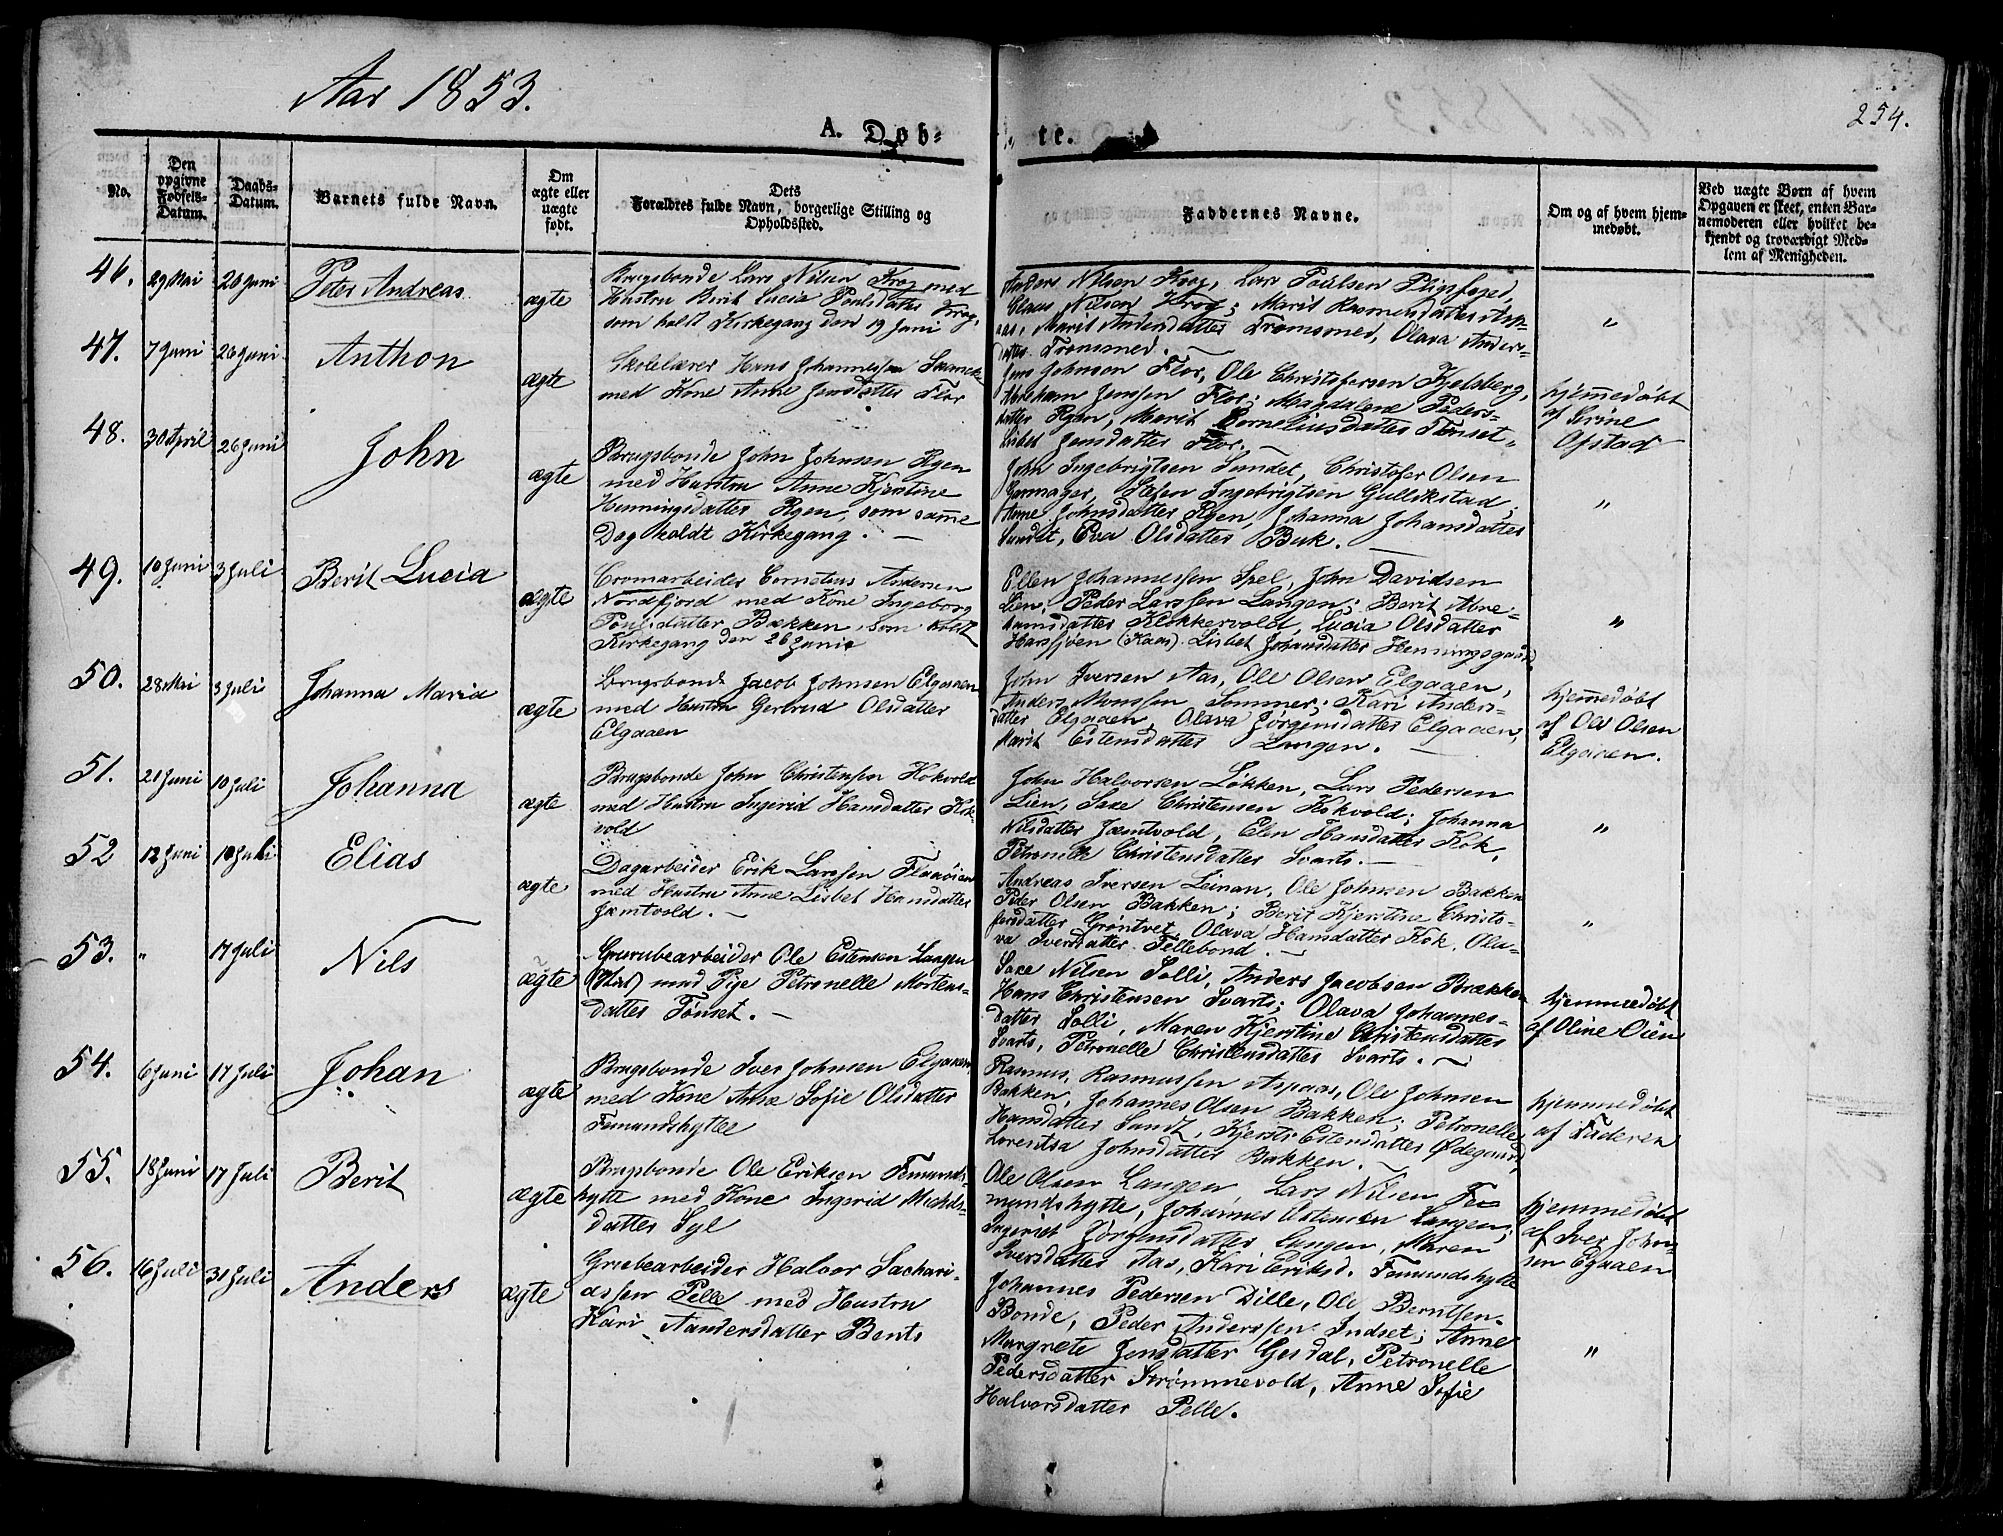 Aar 1853.
254.
A. Døb-
te.
No.
Den opgivne Fødsels-Datum.
Daabs-Datum.
Barnets fulde Navn.
Om ægte eller uægte født.
Dets Forældres fulde Navn, borgerlige Stilling og Opholdssted.
Faddernes Navne.
Om og af hvem hjemmedøbt.
Ved uægte Børn af hvem Opgaven er skeet, enten Barnemoderen eller hvilket bekjendt og troværdigt Medlem af Menigheden.
46. 29 Mai 26 Juni Peter Andreas ægte
Brugsbonde Lars Nilsen Krog med
Hustru Berit Lucia Poulsdatter Krog,
som holdt Kirkegang den 19 Juni
Anders Nilsen Krog, Lars Poulsen
Claus Nilsen Krog; Marit Rasmusdatter Asp-
aas, Marit Andersdatter Tromsmed, Olava Anders-
datter Tromsmed.
"
47. 7 Juni 26 Juni Anthon ægte
Skolelærer Hans Johannessen
med Kone Anne Jensdatter Flor
Jens Johnson Flor, Ole Christofersen Kjelsberg,
Abraham Jenssen Flor; Magdalene Peders-
datter Rgen, Marit Corneliusdatter Tønset,
Lisbet Jensdatter Flor.
hjemmedøbt
af Serine
Opstad
48. 30 April 26 Juni John ægte
Brugsbonde John Johnsen Rgen
med Hustru Anne Kjerstine
Henningsdatter Rgen, som samme
Dag holdt Kirkegang.
John Ingebrigtsen Sundet, Christofer Olsen
Ingebrigtsen Gullikstad;
Anne Johnsdatter Rgen, Johanna Johansdatter
Sundet, Eva Olsdatter Bak.
"
49. 10 Juni 3 Juli Berit Lucia ægte
Cromarbeider Cornelius Andersen
Nordfjord med Kone Ingeborg
Poulsdatter Bækken, som holdt
Kirkegang den 26 Juni
Ellen Johannessen Spel, John Davidsen
Lien, Peder Larssen Langen; Berit Abra-
hamsdatter Klokkervold, Lucia Olsdatter
Harsjøen (Kaas) Lisbet Johansdatter Henningsgaard
"
50. 28 Mai 3 Juli Johanna Maria ægte
Brugsbonde Jacob Johnsen Elgaaen
med Hustru Gertrud Olsdatter
Elgaaen
John Iversen Aas, Ole Olsen Elgaaen,
Anders Monssen Sommer; Kari Anders-
datter Elgaaen, Olava Jørgensdatter Elgaaen,
Marit Estensdatter Langen.
hjemmedøbt
af Ole Olsen
Elgaaen.
51. 21 Juni 10 Juli Johanna ægte
Brugsbonde John Christensen Kokvold
med Hustru Ingerid Hansdatter Kok-
vold
John Halvorsen Løkken, Lars Pedersen
Lien, Saxe Christensen Kokvold; Johanna
Nilsdatter Jæmtvold, Elen Hansdatter Kok,
Petronelle Christensdatter Svarts.
"
52 12 Juni 10 Juli Elias ægte
Dagarbeider Erik Larssen Flaaøien
med Hustru Ane Lisbet Hansdatter
Jæmtvold.
Andreas Iversen Leinan, Ole Johnsen Bakken
Peder Olsen Bakken; Berit Kjerstine Christo-
fersdatter Grøntvet, Olava Hansdatter Kok, Ola-
va Iversdatter Fellebond.
"
53. " 17 Juli Nils ægte
Grurubearbeider Ole Estensen Langen
med Pige Petronelle Mortens-
datter Tønset.
Saxe Nilsen Solli, Anders Jacobsen Brække
Hans Christensen Svarts; Olava Johannes-
datter Solli, Maren Kjerstine Christensdatter
Svarts, Petronelle Christensdatter Svarts.
hjemmedøbt
af Oline Oien
54. 6 Juni 17 Juli Johan ægte
Brugsbonde Iver Johnsen Elgaaen
med Kone Ane Sofie Olsdatter
Femundshytte
Rasmus Rasmussen Aspaas, Ole Johnsen
Bakken, Johannes Olsen Bakken; Petronelle
Hansdatter Sundt, Kjersti Estensdatter Ødegaard,
Lorentsa Johnsdatter Bakken.
hjemmedøbt
af Faderen
55. 18 Juni 17 Juli Berit ægte
Brugsbonde Ole Eriksen Femunds-
hytte med Kone Ingerid Michels-
datter Syl
Ole Olsen Langen Lars Nilsen Fe-
mundshytte, Johannes Estensen Langen;
Ingerid Jørgensdatter Langen, Maren
Iversdatter Aas, Kari Eriksd. Femundshytte
hjemmedøbt
af Iver John-
sen Egaaen
56. 16 Juli 31 Juli Anders ægte
Grubearbeider Halvor Sachari-
assen Pelle med Hustru
Kari Aandersdatter Bents
Johannes Pedersen Dille, Ole Berntsen
Bonde, Peder Anderssen Indset; Anne
Margrete Jensdatter Gesdal, Petronelle
Pedersdatter Strømmevold, Anne Sofie
Halvorsdatter Pelle.
"